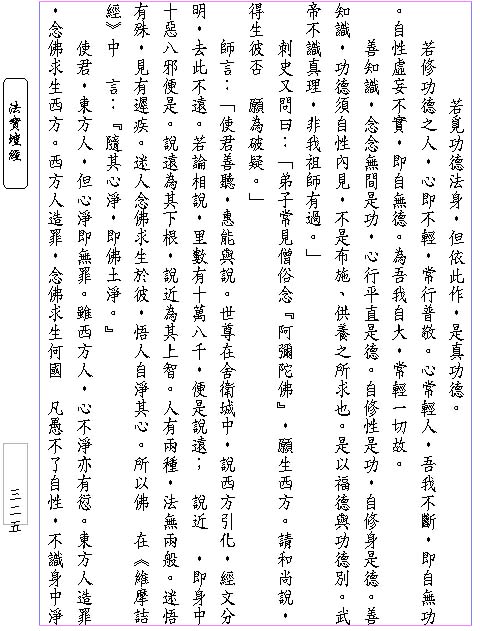 若覓功德法身，但依此作，是真功德。
若修功德之人，心即不輕，常行普敬。心常輕人，吾我不斷，即自無功
。自性虛妄不實，即自無德。為吾我自大，常輕一切故。
善知識，念念無間是功，心行平直是德。自修性是功，自修身是德。善
知識，功德須自性內見，不是布施、供養之所求也。是以福德與功德別。武
帝不識真理，非我祖師有過。」
刺史又問曰：「弟子常見僧俗念『阿彌陀佛』，願生西方。請和尚說，
得生彼否　願為破疑。」
師言：「使君善聽，惠能與說。世尊在舍衛城中，說西方引化，經文分
明，去此不遠。若論相說，里數有十萬八千，便是說遠；　說近　，即身中
十惡八邪便是。說遠為其下根，說近為其上智。人有兩種，法無兩般。迷悟
有殊，見有遲疾。迷人念佛求生於彼，悟人自淨其心。所以佛　在《維摩詰
經》中　言：『隨其心淨，即佛土淨。』
使君，東方人，但心淨即無罪。雖西方人，心不淨亦有愆。東方人造罪
，念佛求生西方。西方人造罪，念佛求生何國　凡愚不了自性，不識身中淨
法寶壇經
三二五